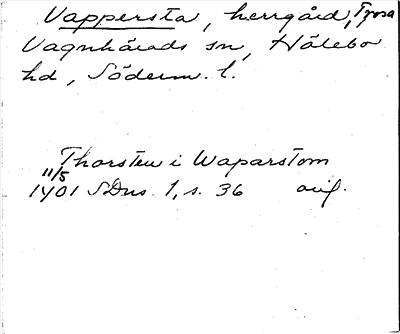 Vappersta, herrgård, Trosa
Vagnhärads sn, Hölebo
hd, Söderm. l.
Thorsten i Waparstom
11/5
1401 SDns 1, s. 36 orig.